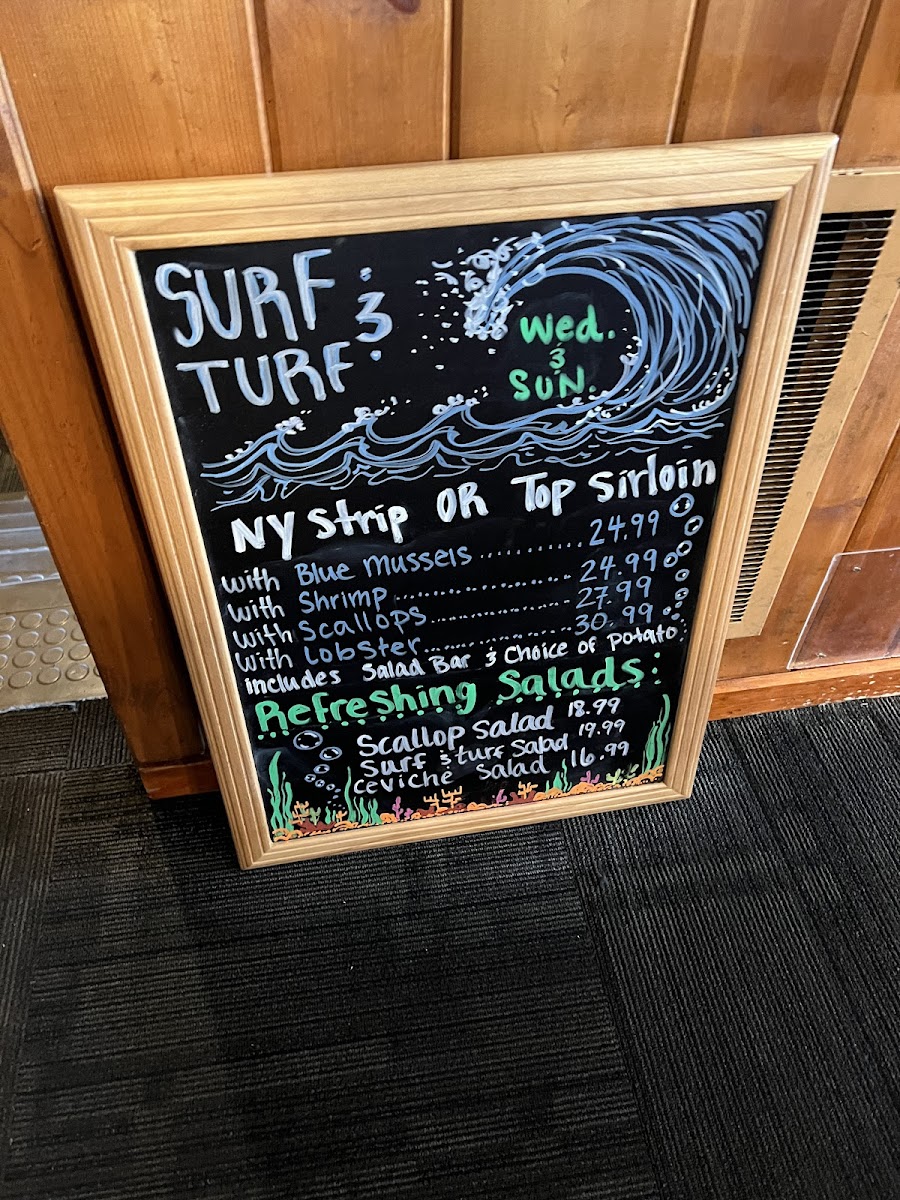 SURF &
TURF
Wed.
&
SUN.
NY Strip OR Top Sirloin
with Blue Mussels ............ 24.99
with Shrimp ..................... 24.99
with Scallops ................... 27.99
with Lobster .................... 30.99
includes Salad Bar & Choice of potato
Refreshing Salads:
Scallop Salad 18.99
Surf & turf Salad 19.99
ceviche Salad 16.99